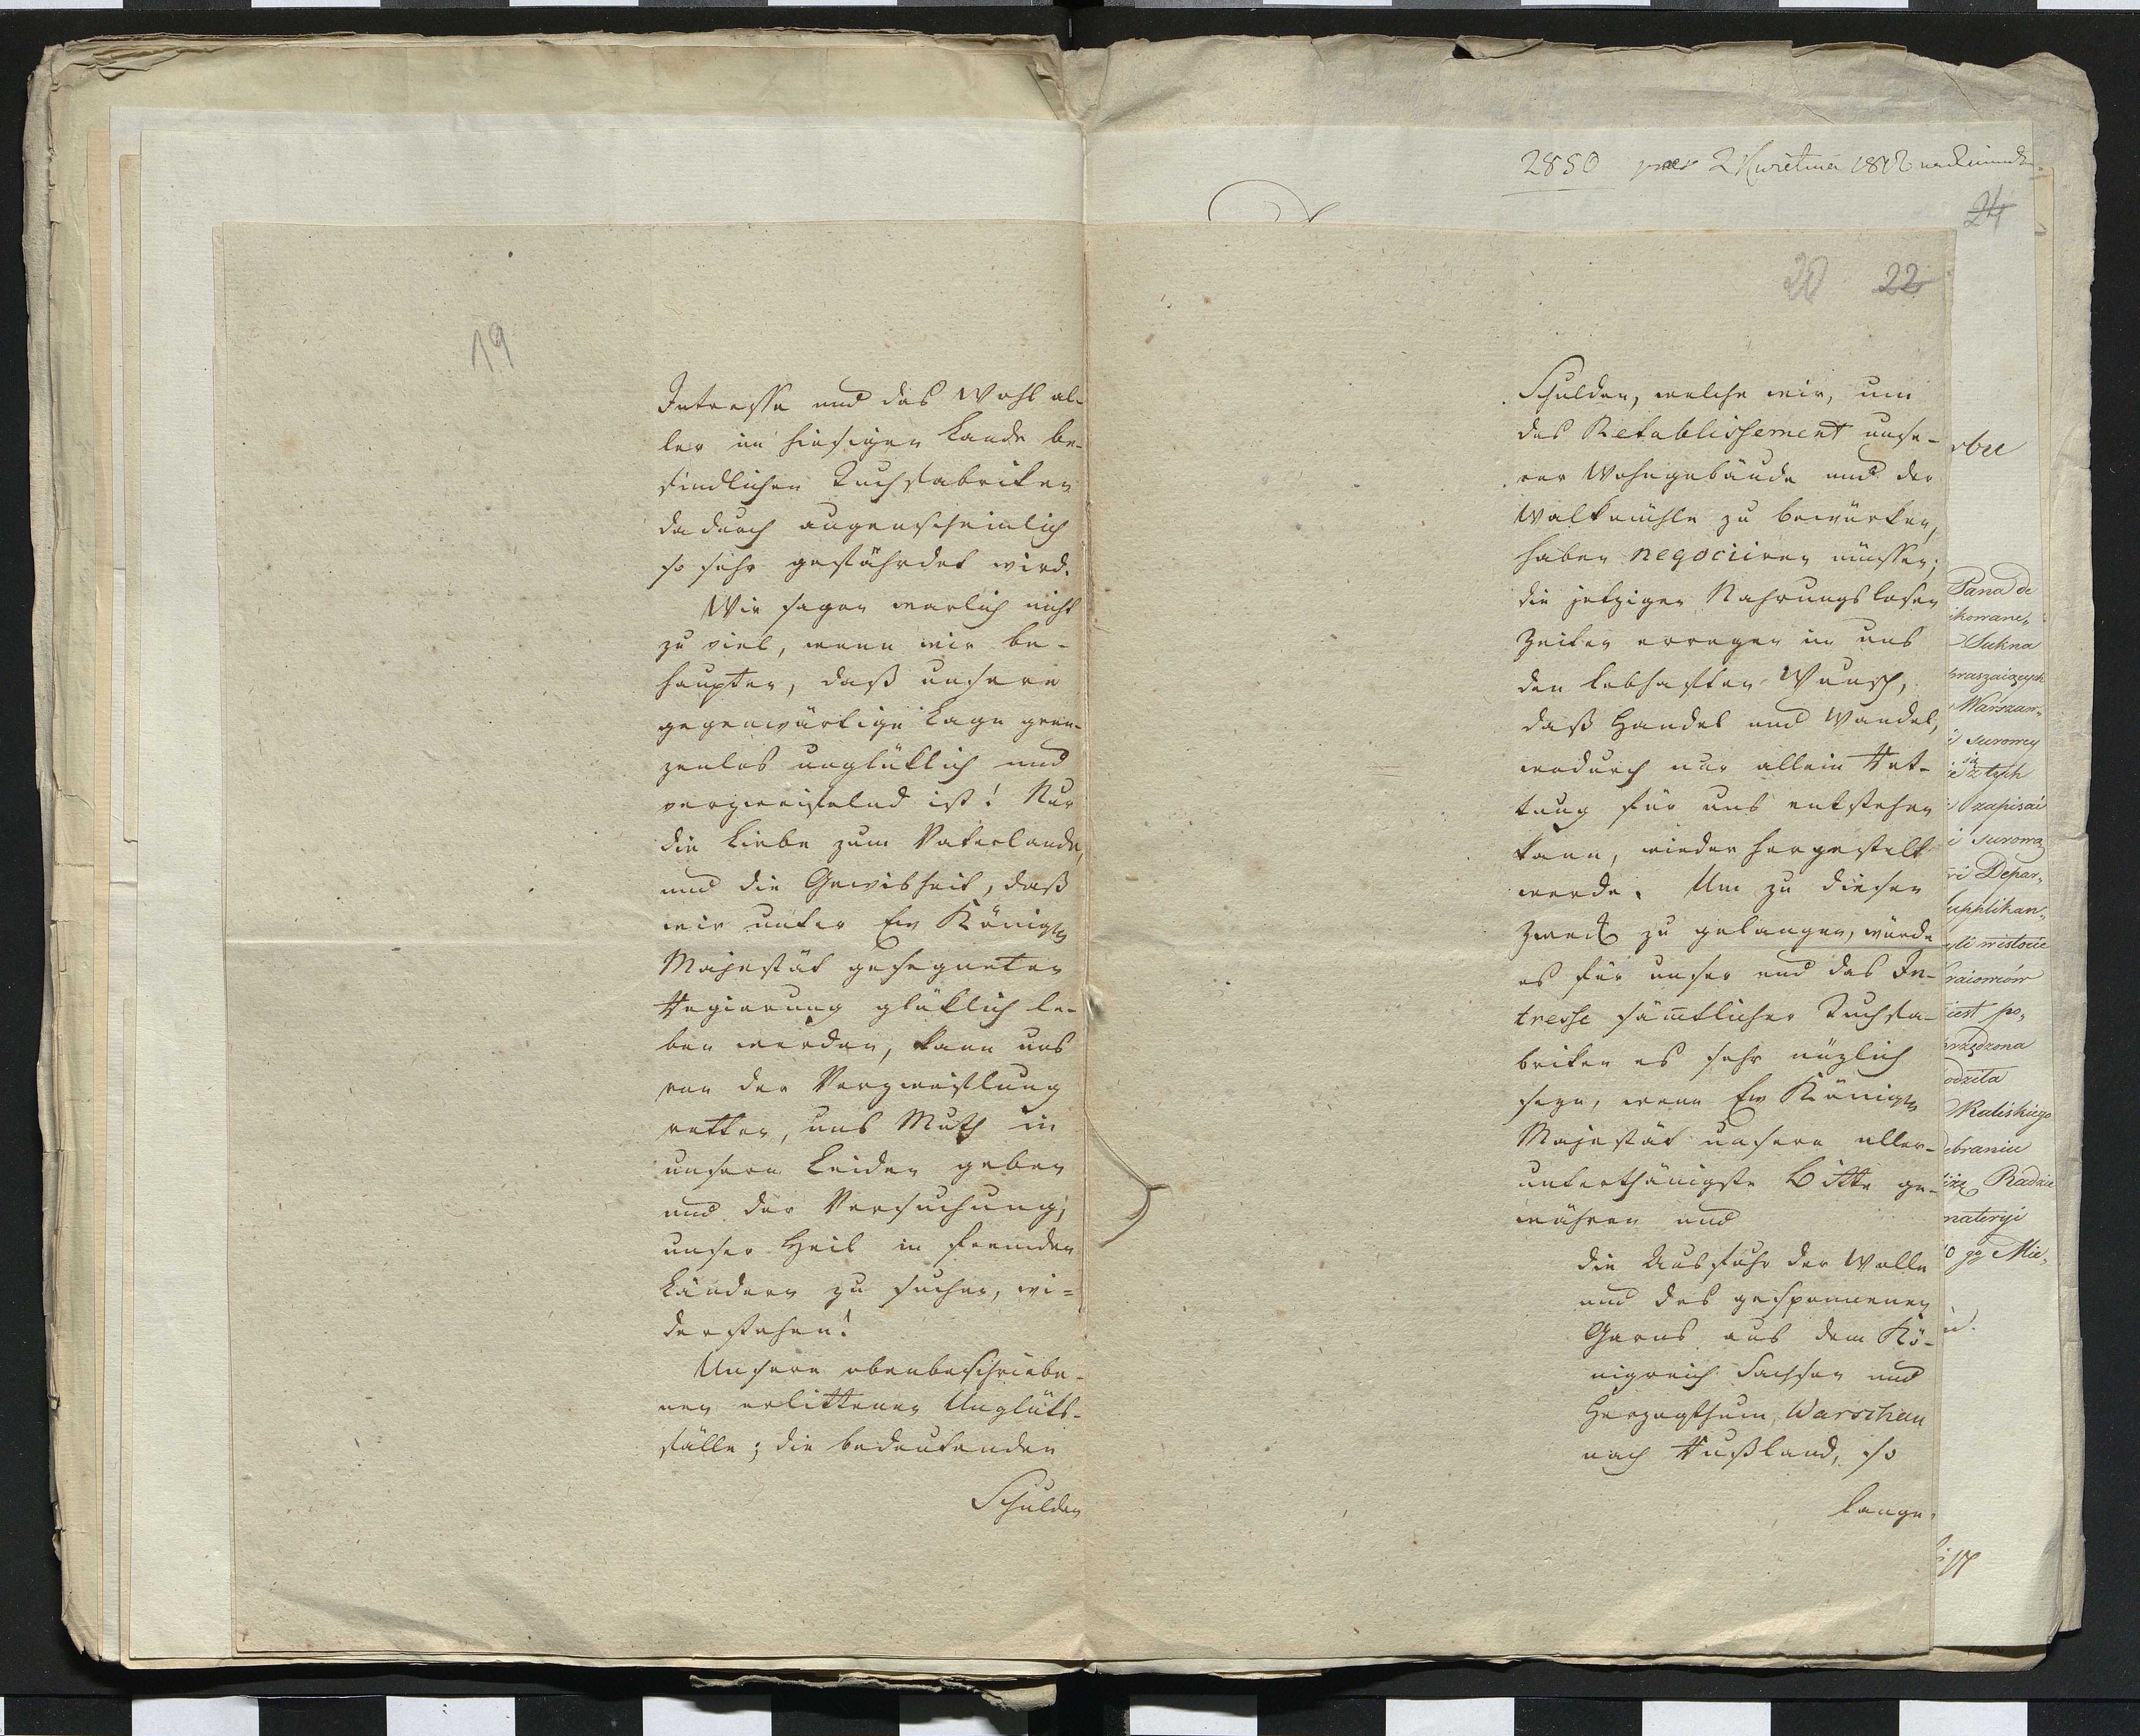 19
Interesse und das Wohl al-
ler im hiesigen Lande be-
findlichen Tuchfabriken
dadurch augenscheinlich
so sehr gefährdet wird.
Wir sagen warlich nicht
zu viel, wenn wir be-
haupten, daß unsere
gegenwärtige Lage gren-
zenlos unglüklich und
verzweifelnd ist! Nur
die Liebe zum Vaterlande,
und die Gewisheit, daß
wir unter Ew Königln
Majestät gesegneten
Regierung glüklich le-
ben werden, kann uns
von der Verzweiflung
retten, uns Muth in
unsern Leiden geben
und der Versuchung,
unser Heil in fremden
Ländern zu suchen, wi=
derstehen!
Unsere obenbeschriebe-
nen erlittenen Unglüks-
fälle; die bedeutenden
Schulden
2850 2 Kwietnia 1812
24
20 22
Schulden, welche wir, um
das Retablissement unse-
rer Wohngebäude und der
Walkmühle zu bewürken,
haben negociiren müssen;
die jetzigen Nahrungslosen
Zeiten erregen in uns
den lebhaften Wunsch,
daß Handel und Wandel,
wodurch nur allein Ret-
tung für uns entstehen
kann, wieder hergestellt
werde. Um zu diesen
Zweck zu gelangen, würde
es für unser und das In-
tresse sämtlicher Tuchfa-
briken es sehr nüzlich
seyn, wenn Ew Königln
Majestät unsere aller-
unterthänigste Bitte ge-
währen und
die Ausfuhr der Wolle
und des gesponnenen
Garns aus dem Kö-
nigreich Sachsen und
Herzogthum Warschau
nach Rußland, so
lange
Pana de
ikowane„
Sukna
braszaiących
Warszaw„
i surowey
ie się z tych
zapisać
i surową
Depar„
supplikan„
eśli wistocie
kraiowców
iest po„
Kaliskiego
ebraniu
Radzie
materyi
go Mie„